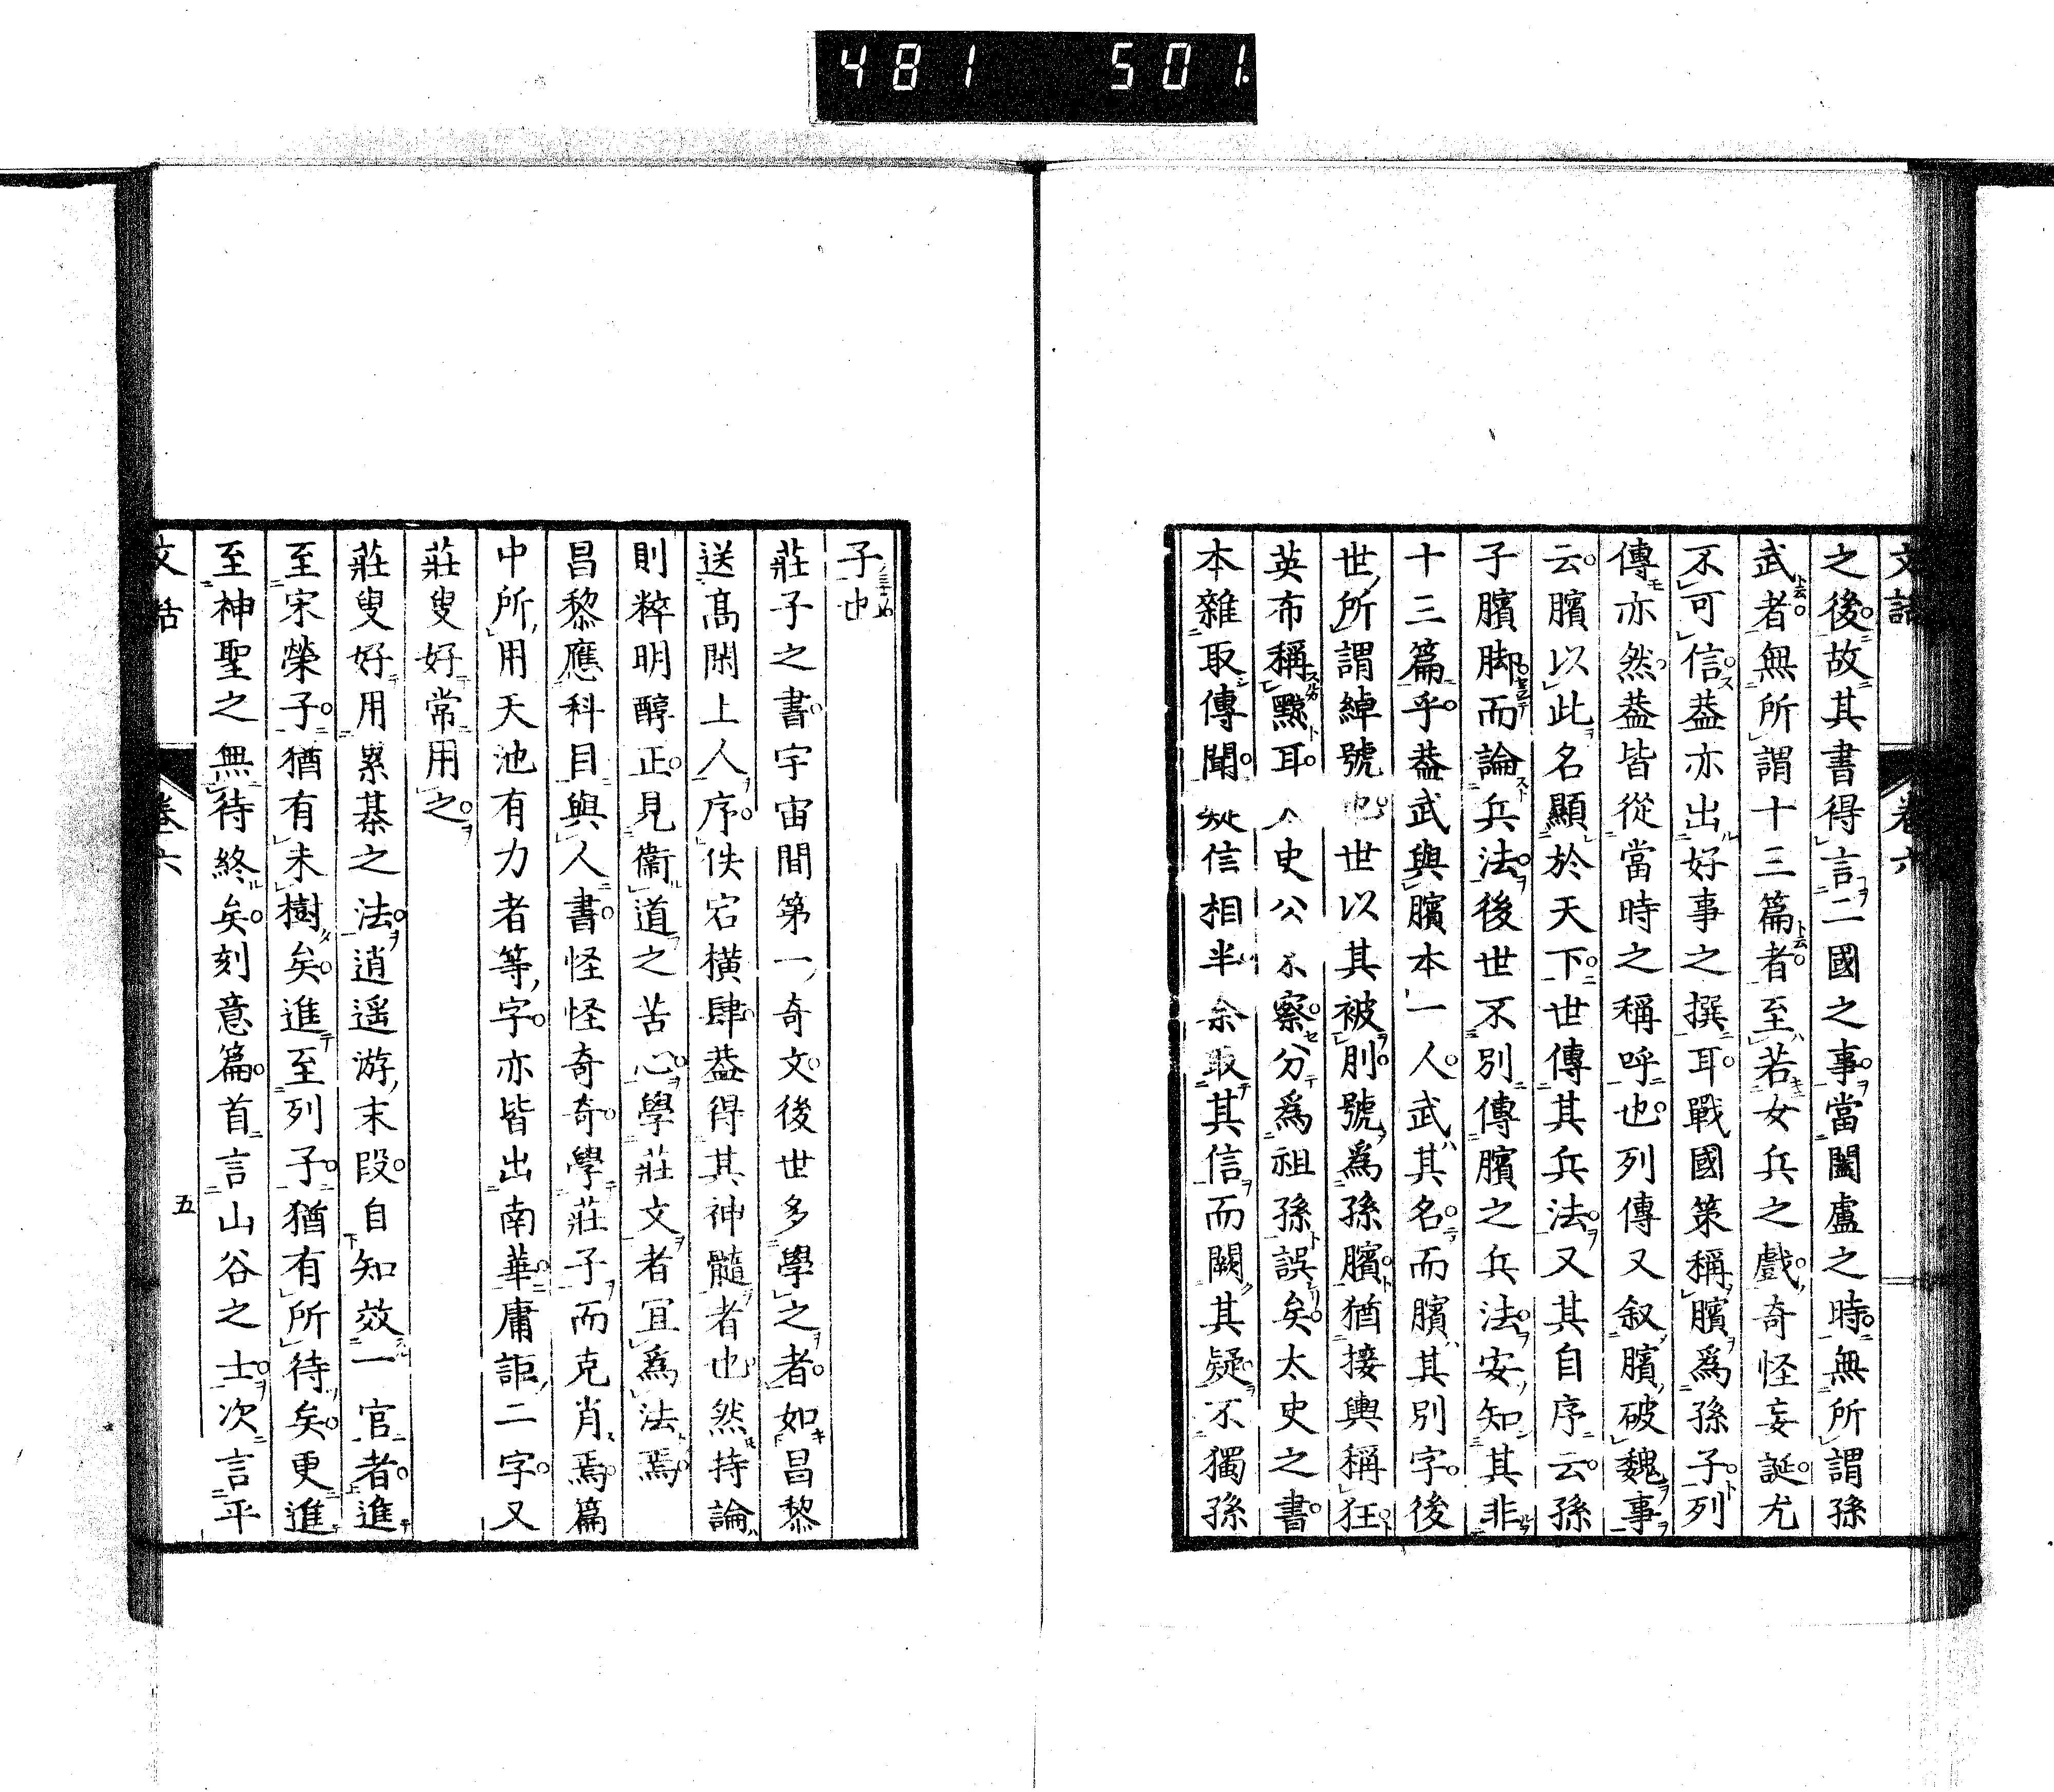 481 501.
文話 卷六
之後。故其書得言二國之事。當闔盧之時。無所謂孫
武者。無所謂十三篇者。至若女兵之戲。奇怪妄誕。尤
不可信。葢亦出好事之撰耳。戰國策稱臏爲孫子。列
傳亦然。葢皆從當時之稱呼也。列傳又叙臏破魏事
云。臏以此名顯於天下。世傳其兵法。又其自序云。孫
子臏脚而論兵法。後世不別傳臏之兵法。安知其非
十三篇乎。葢武與臏本一人。武其名。而臏其別字。後
世所謂綽號也。世以其被刖號爲孫臏。猶接輿稱狂。
英布稱黥耳。 史公 察。分爲祖孫。誤矣。太史之書。
本雜取傳聞。 信相半。余取其信而闕其疑。不獨孫
子也
莊子之書。宇宙間第一奇文。後世多學之者。如昌黎
送高閑上人序。佚宕橫肆。葢得其神髓者也。然持論
則粹明醇正。見衞道之苦心。學莊文者宜爲法焉。
昌黎應科目與人書。怪怪奇奇。學莊子而克肖焉。篇
中所用天池有力者等字。亦皆出南華。庸詎二字。又
莊叟好常用之。
莊叟好用累棊之法。逍遥游末段。自知效一官者。進
至宋榮子。猶有未樹矣。進至列子。猶有所待矣。更進
至神聖之無待終矣。刻意篇。首言山谷之士。次言平
文話 卷六 五